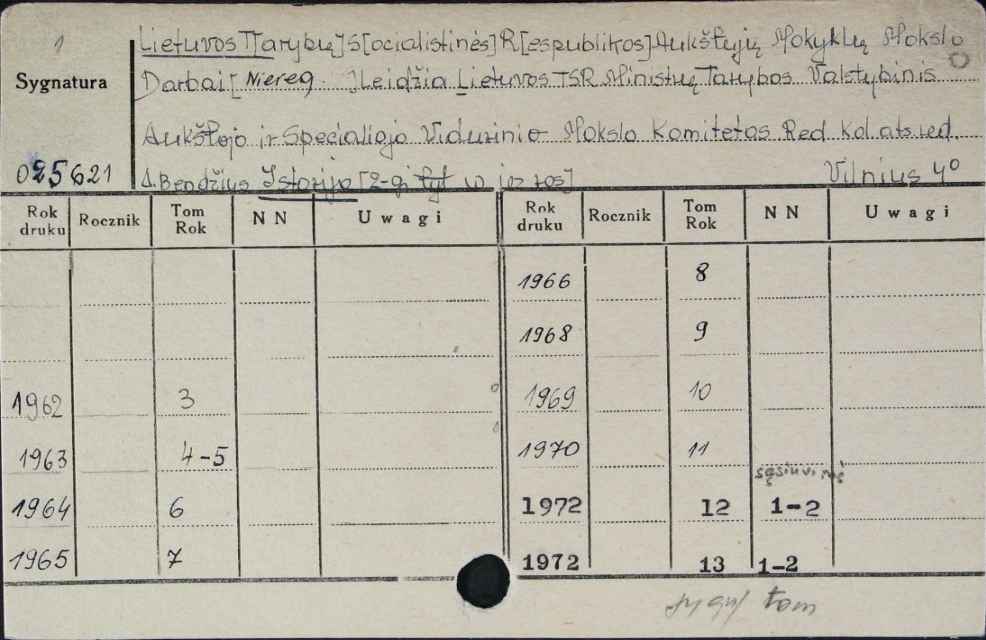 1
Lietuvos T[arybų] S[ocialistinės] R[espublikos] Aukštųjų Mokyklų Mokslo
Sygnatura
Darbai [Niereg. Leidžia Lietuvos TSR Ministrų Tarybos Valstybinis
Aukštojo ir Specialiojo Vidurinio Mokslo Komitetas Red. kol. ats. red.
025621
J. Bendžius Istorija [2-gi tyt. w jęz ros] Vilnius 4°
Rok druku Rocznik Tom Rok NN Uwagi Rok druku Rocznik Tom Rok NN Uwagi
1966 8
1968 9
1962 3 1969 10
1963 4-5 1970 11
sąsiuvinė
1964 6 1972 12 1-2
1965 7 1972 13 1-2
sygn/ tom